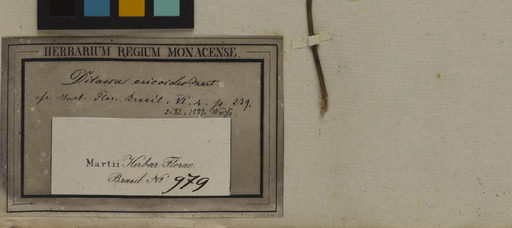 HERBARIUM REGIUM MONACENSE.
Ditassa ericoides Mart
cf. Mart. Flor. Brasil. VI. 4. p. 239.
Martii Herbar. Florae
Brasil. No 979